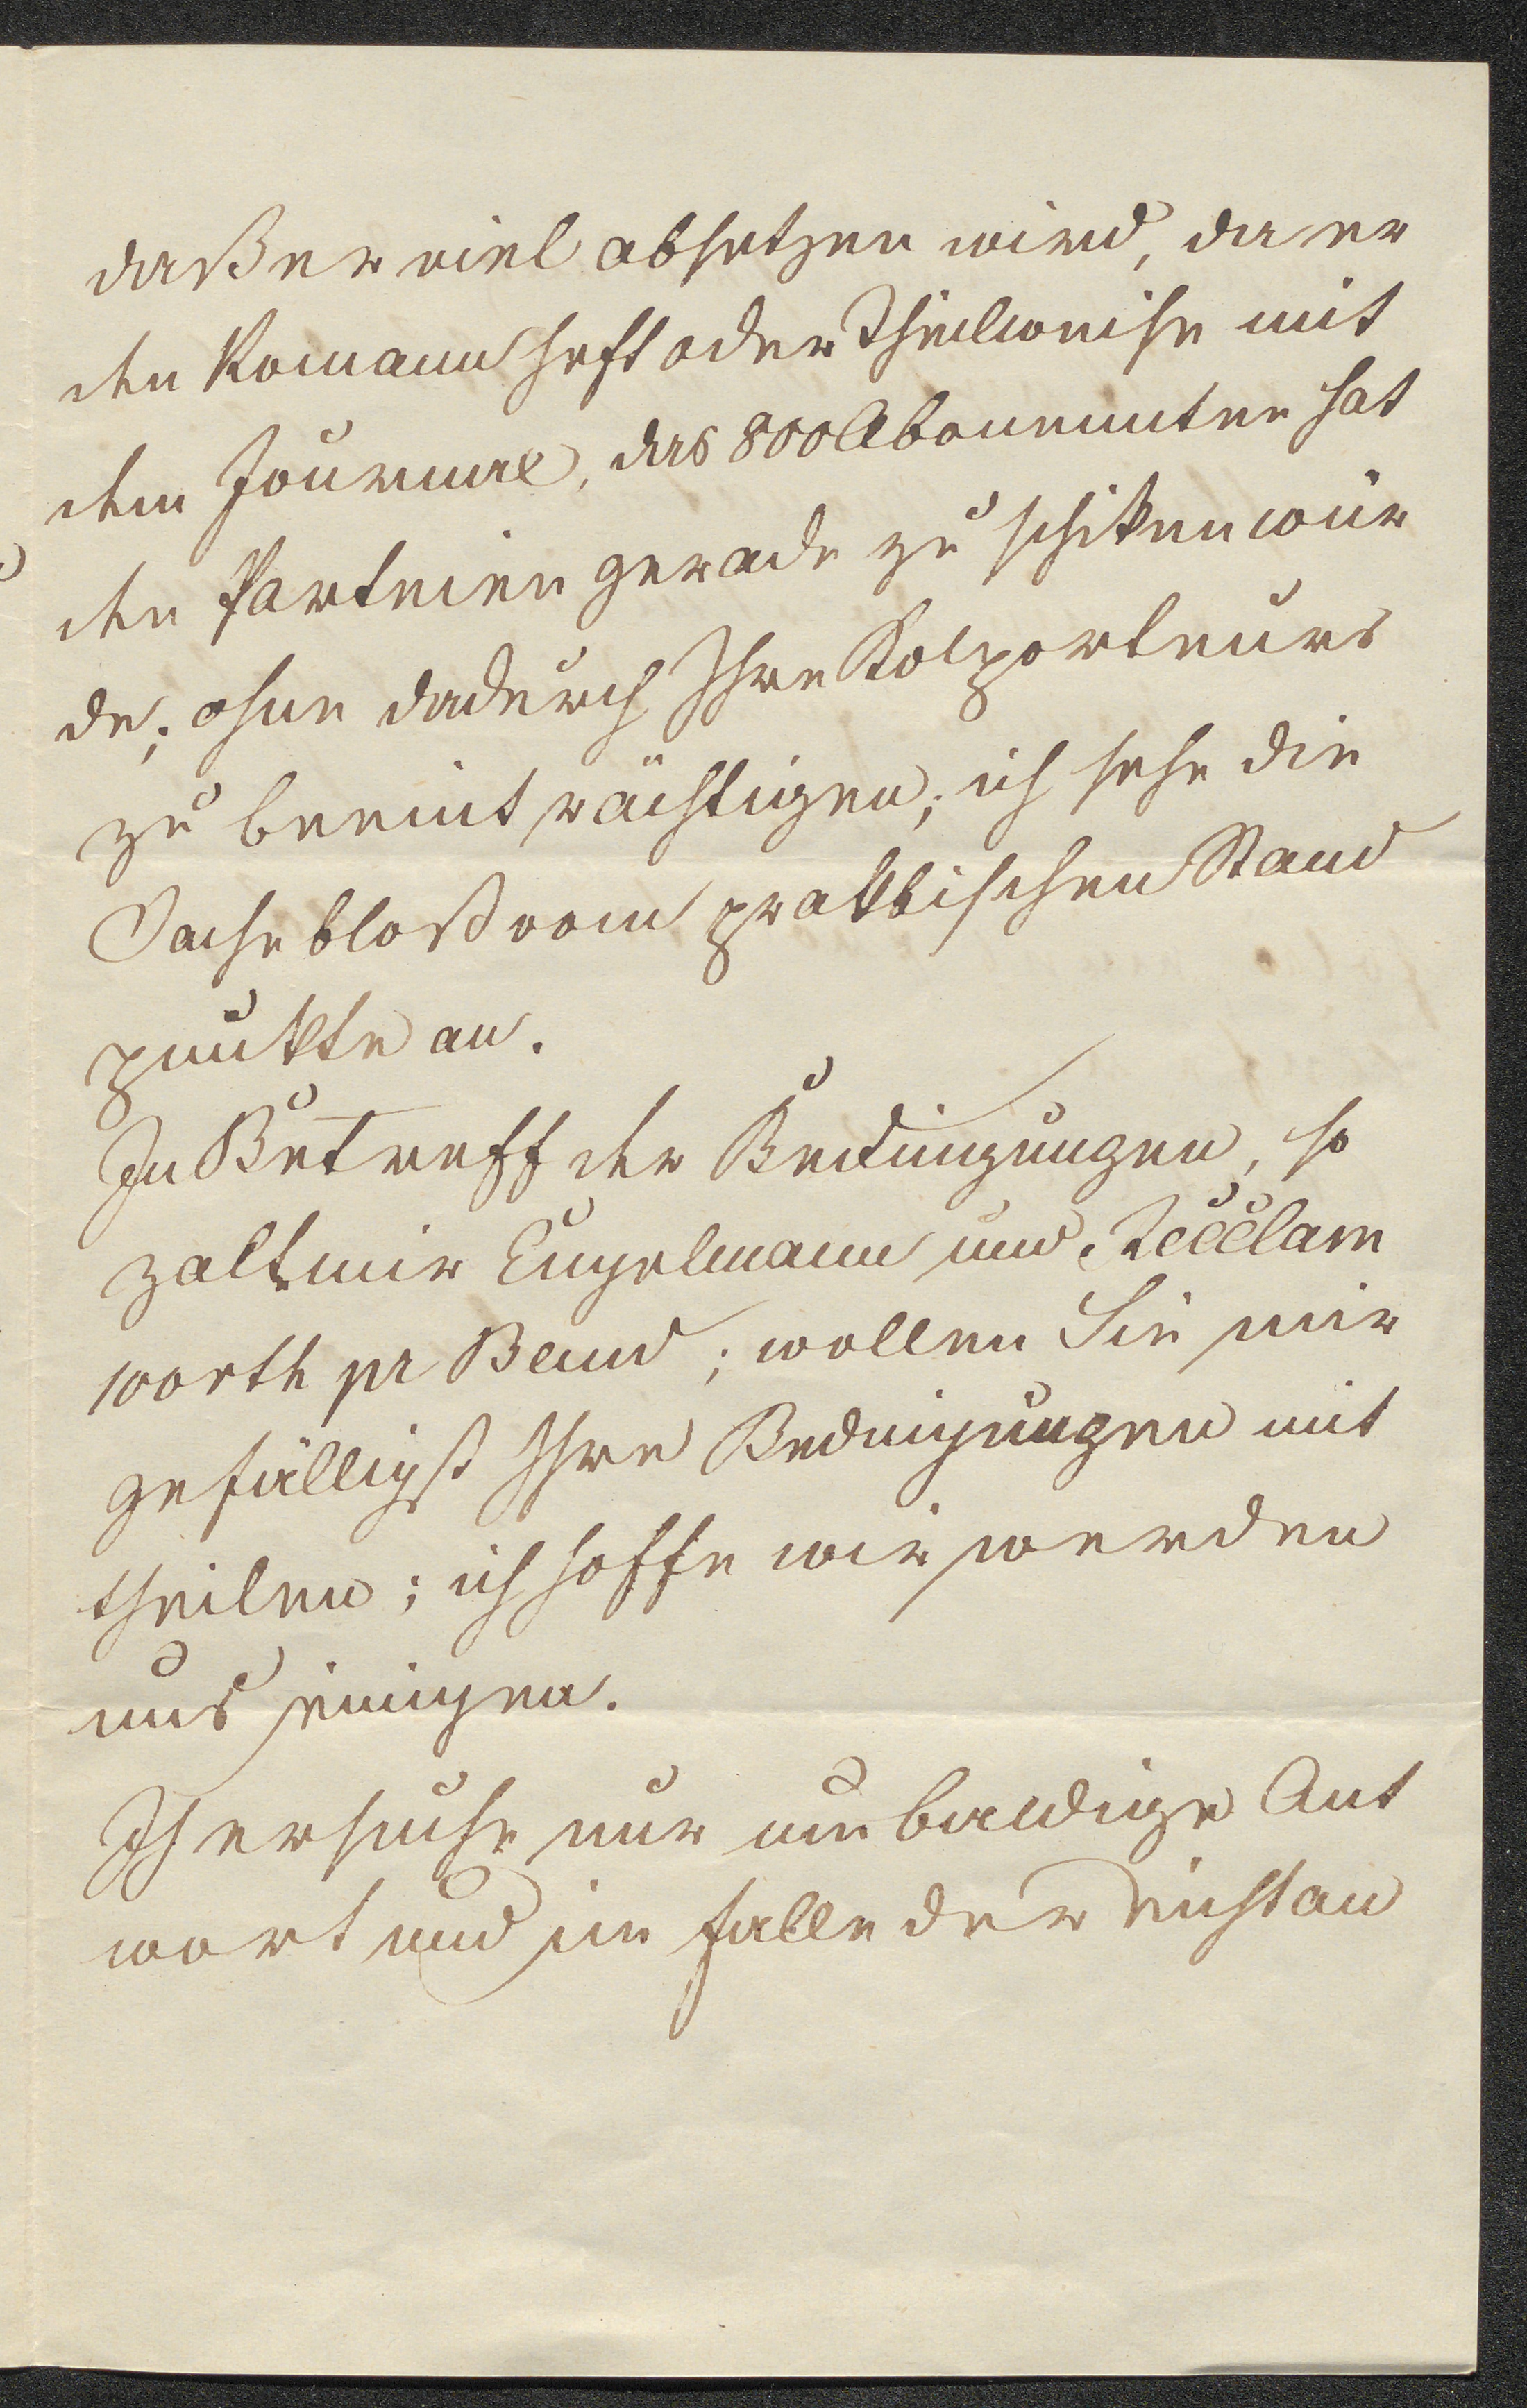 daß er viel absetzen wird, da er
den Romann heft oder Theilweise mit
dem Journal, das 800 Abonennten hat
den Parteien gerade zu schiken wür
de; ohne dadurch Ihre Kolporteurs
zu beeinträchtigen; ich sehe die
Sache bloß vom praktischen Stand
punkte an.
In Betreff der Bedingungen, so
zalt mir Engelmann und Recclam
100 rth pr Band; wollen Sie mir
gefälligst Ihre Bedingungen mit
theilen; ich hoffe wir werden
uns einigen.
Ich ersuche nur um baldige Ant
wort und im falle der nicht an